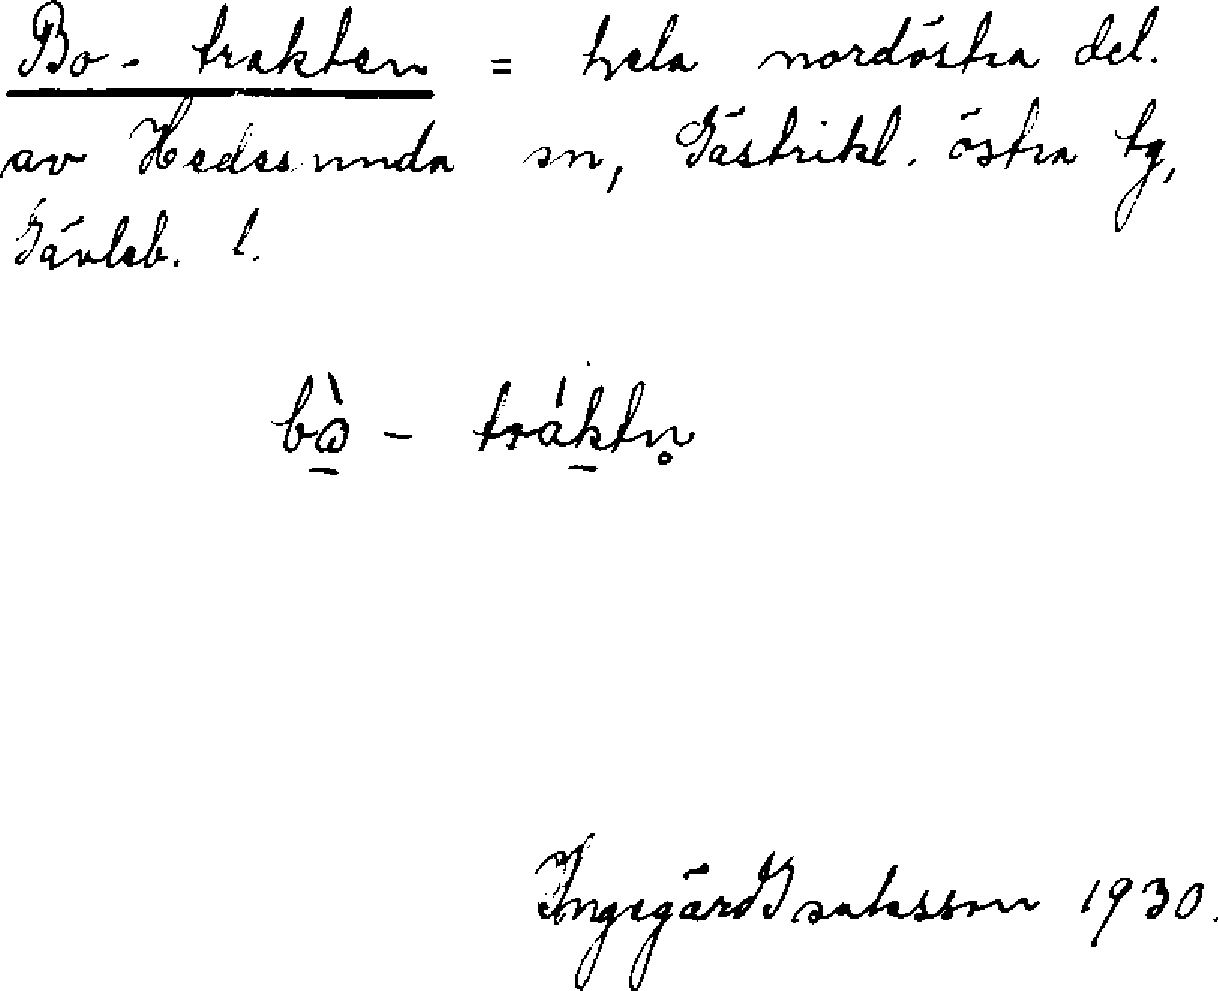 Bo-trakten = hela nordöstra del.
av Hedesunda sn, Gästrikl. östra tg,
Gävleb. l.
bò̱ - trákt̠n̥
Ingegärd Isaksson 1930.